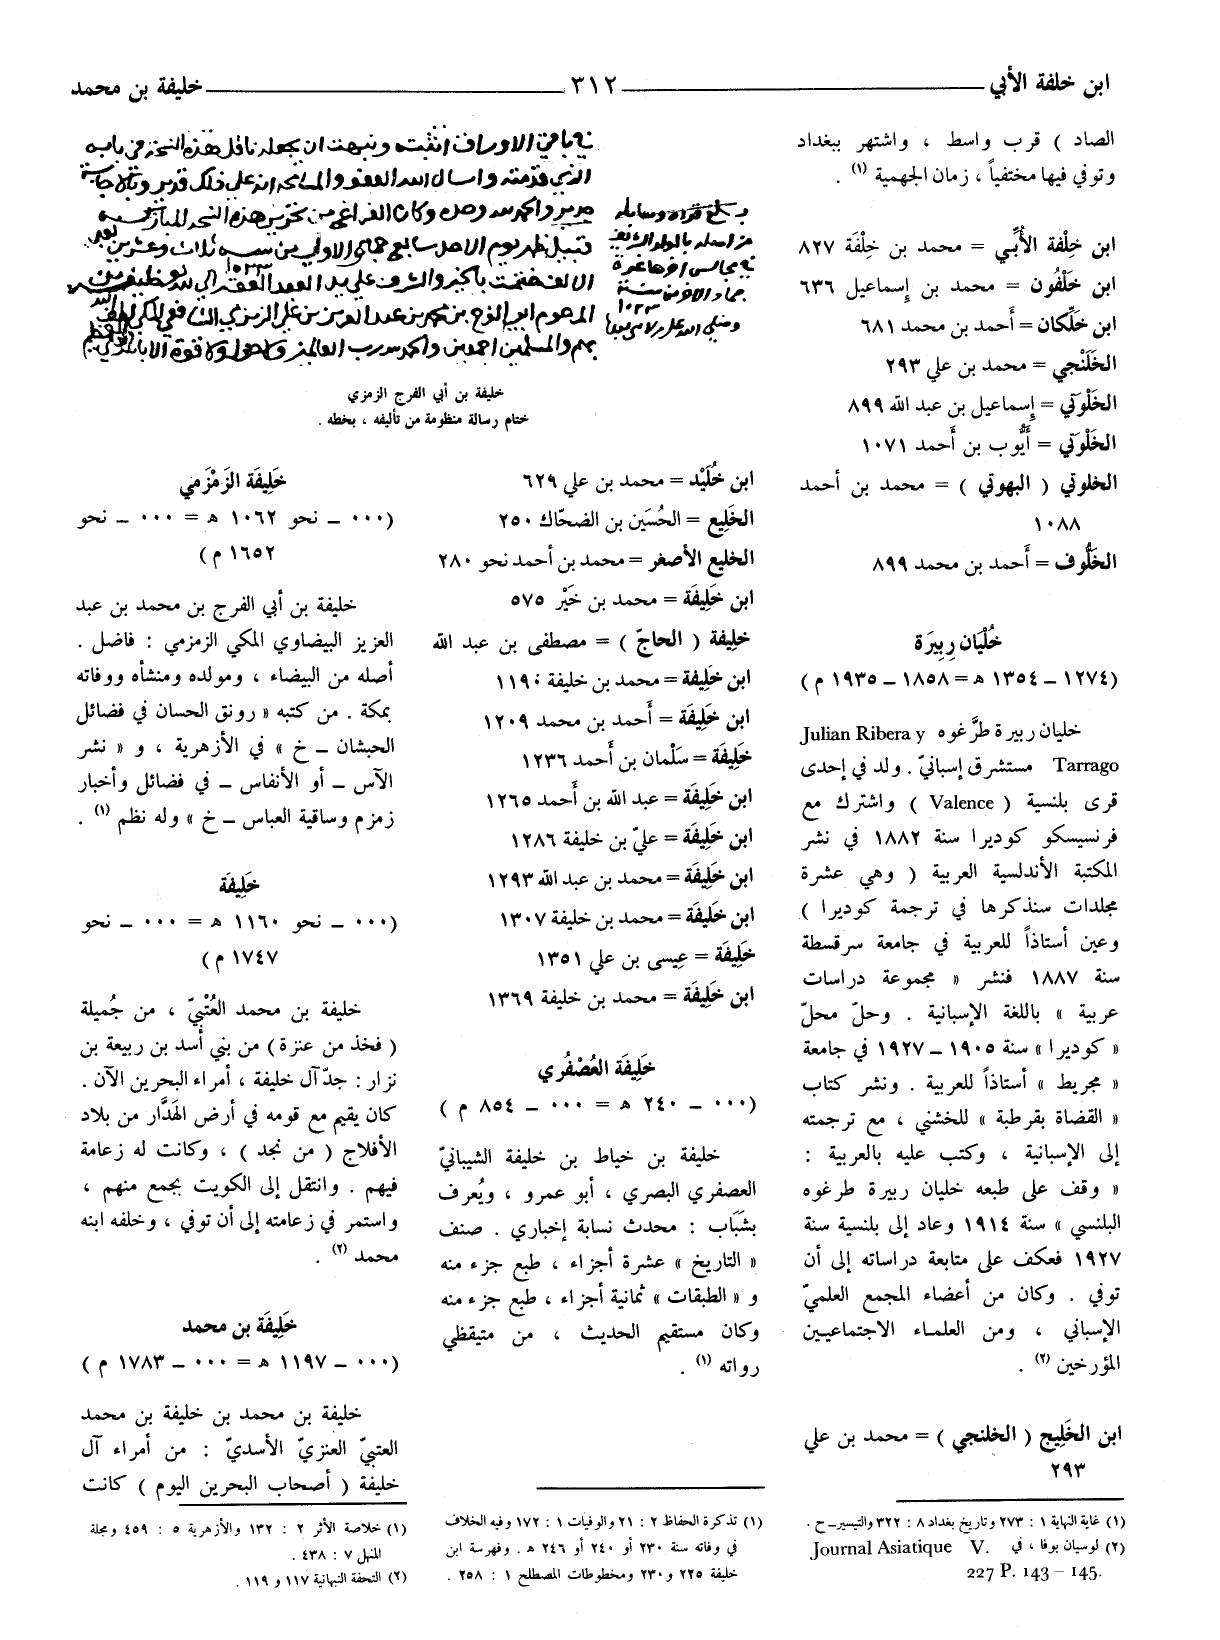 ابن خلفة الأبي ــــ ٣١٢ ــــ خليفة بن محمد
الصاد ) قرب واسط ، واشتهر ببغداد
وتوفي فيها مختفياً ، زمان الجهمية (١) .
ابن خِلْفة الأُبِّي = محمد بن خِلْفَة ٨٢٧
ابن خَلْفُون = محمد بن إسماعيل ٦٣٦
ابن خَلِّكان = أحمد بن محمد ٦٨١
الخَلَنْجي = محمد بن علي ٢٩٣
الخَلْوَتي = إسماعيل بن عبد الله ٨٩٩
الخَلْوَتي = أَيُّوب بن أَحمد ١٠٧١
الخلوتي ( البهوتي ) = محمد بن أحمد
١٠٨٨
الخَلُّوف = أَحمد بن محمد ٨٩٩
خُلْيَان رِبِيرَة
(١٢٧٤ ــ ١٣٥٤ ه = ١٨٥٨ ــ ١٩٣٥ م )
خليان ربيرة طرَّغوه Julian Ribera y
Tarrago مستشرق إسبانيّ . ولد في إحدى
قرى بلنسية ( Valence ) واشترك مع
فرنسيسكو كوديرا سنة ١٨٨٢ في نشر
المكتبة الأندلسية العربية ( وهي عشرة
مجلدات سنذكرها في ترجمة كوديرا )
وعين أستاذاً للعربية في جامعة سرقسطة
سنة ١٨٨٧ فنشر « مجموعة دراسات
عربية » باللغة الإسبانية . وحلّ محلّ
« كوديرا » سنة ١٩٠٥ ــ ١٩٢٧ في جامعة
« مجريط » أستاذاً للعربية . ونشر كتاب
« القضاة بقرطبة » للخشني ، مع ترجمته
إلى الإسبانية ، وكتب عليه بالعربية :
« وقف على طبعه خليان ربيرة طرغوه
البلنسي » سنة ١٩١٤ وعاد إلى بلنسية سنة
١٩٢٧ فعكف على متابعة دراساته إلى أن
توفي . وكان من أعضاء المجمع العلميّ
الإسباني ، ومن العلماء الاجتماعيين
المؤرخين (٢) .
ابن الخَلِيج ( الخلنجي ) = محمد بن علي
٢٩٣
(١) غاية النهاية ١ : ٢٧٣ وتاريخ بغداد ٨ : ٣٢٢ والتيسير ــ خ .
(٢) لوسيان بوفا ، في Journal Asiatique V.
227 P. 143 – 145.
بلغ قراءة
خليفة بن أبي الفرج الزمزي
ختام رسالة منظومة من تأليفه ، بخطه .
ابن خُلَيْد = محمد بن علي ٦٢٩
الخَلِيع = الحُسَين بن الضحّاك ٢٥٠
الخليع الأصغر = محمد بن أحمد نحو ٢٨٠
ابن خَلِيفَة = محمد بن خَيْر ٥٧٥
خليفة ( الحاجّ ) = مصطفى بن عبد الله
ابن خَلِيفة = محمد بن خليفة ١١٩٠
ابن خَلِيفَة = أَحمد بن محمد ١٢٠٩
خَلِيفَة = سَلْمان بن أَحمد ١٢٣٦
ابن خَلِيفَة = عبد الله بن أَحمد ١٢٦٥
ابن خَلِيفَة = عليّ بن خليفة ١٢٨٦
ابن خَلِيفَة = محمد بن عبد الله ١٢٩٣
ابن خَلِيفَة = محمد بن خليفة ١٣٠٧
خَلِيفَة = عِيسى بن علي ١٣٥١
ابن خَلِيفَة = محمد بن خليفة ١٣٦٩
خَلِيفَة العُصْفُري
(٠٠٠ ــ ٢٤٠ ه = ٠٠٠ ــ ٨٥٤ م )
خليفة بن خياط بن خليفة الشيبانيّ
العصفري البصري ، أبو عمرو ، ويُعرف
بشَبَاب : محدث نسابة إخباري . صنف
« التاريخ » عشرة أجزاء ، طبع جزء منه
و « الطبقات » ثمانية أجزاء ، طبع جزء منه
وكان مستقيم الحديث ، من متيقظي
رواته (١) .
(١) تذكرة الحفاظ ٢ : ٢١ والوفيات ١ : ١٧٢ وفيه الخلاف
في وفاته سنة ٢٣٠ أو ٢٤٠ أو ٢٤٦ ه . وفهرسة ابن
خليفة ٢٢٥ و ٢٣٠ ومخطوطات المصطلح ١ : ٢٥٨ .
خَلِيفَة الزَمْزَمي
(٠٠٠ ــ نحو ١٠٦٢ ه = ٠٠٠ ــ نحو
١٦٥٢ م )
خليفة بن أبي الفرج بن محمد بن عبد
العزيز البيضاوي المكي الزمزمي : فاضل .
أصله من البيضاء ، ومولده ومنشأه ووفاته
بمكة . من كتبه « رونق الحسان في فضائل
الحبشان ــ خ » في الأزهرية ، و « نشر
الآس ــ أو الأنفاس ــ في فضائل وأخبار
زمزم وساقية العباس ــ خ » وله نظم (١) .
خَلِيفَة
(٠٠٠ ــ نحو ١١٦٠ ه = ٠٠٠ ــ نحو
١٧٤٧ م )
خليفة بن محمد العُتْبيّ ، من جُميلة
( فخذ من عنزة ) من بني أسد بن ربيعة بن
نزار : جدّ آل خليفة ، أمراء البحرين الآن .
كان يقيم مع قومه في أرض الهَدَّار من بلاد
الأفلاج ( من نجد ) ، وكانت له زعامة
فيهم . وانتقل إلى الكويت بجمع منهم ،
واستمر في زعامته إلى أن توفي ، وخلفه ابنه
محمد (٢) .
خَلِيفَة بن محمد
(٠٠٠ ــ ١١٩٧ ه = ٠٠٠ ــ ١٧٨٣ م )
خليفة بن محمد بن خليفة بن محمد
العتبيّ العنزيّ الأسديّ : من أمراء آل
خليفة ( أصحاب البحرين اليوم ) كانت
(١) خلاصة الأثر ٢ : ١٣٢ والأزهرية ٥ : ٤٥٩ ومجلة
المنهل ٧ : ٤٣٨ .
(٢) التحفة النبهانية ١١٧ و ١١٩ .